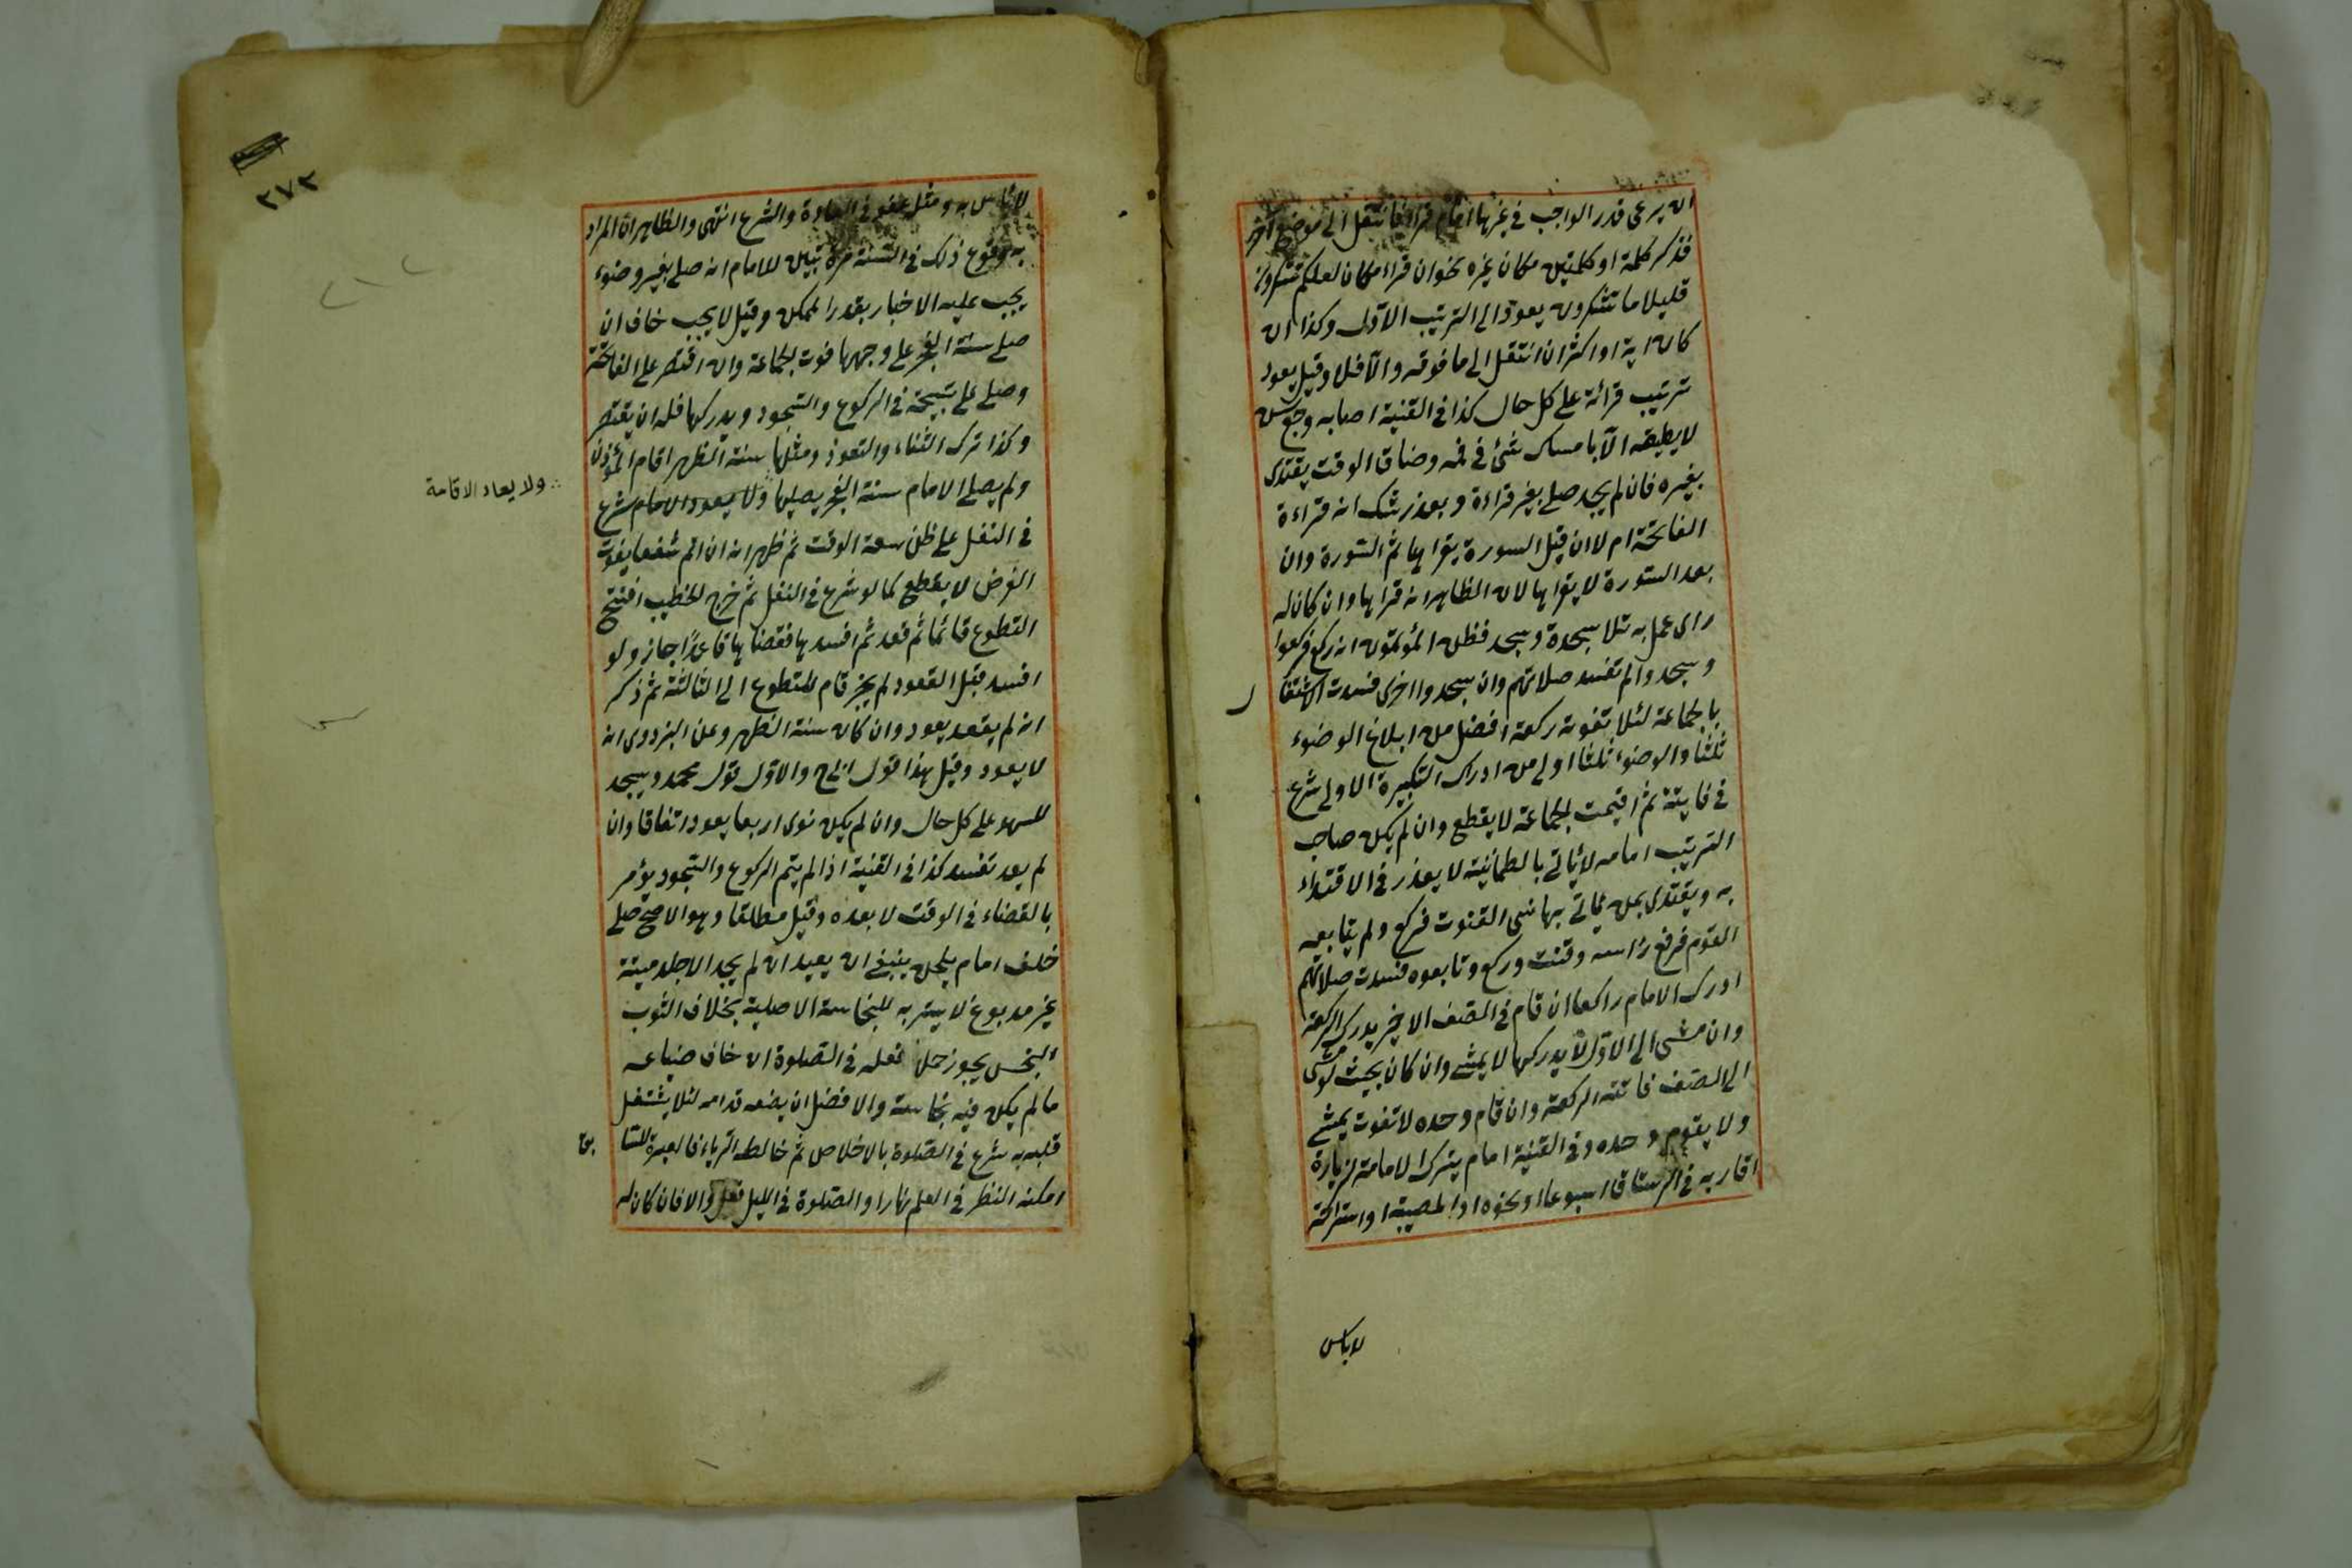 ان يرعى قدر الواجب في غيرها امام قرا فانتقل الى موضع آخر
فذكر كلمة او كلمتين مكان غيره نحو ان قراء مكان لعلكم تشكرون
قليلا ما تشكرون يعود الى الترتيب الاول وكذا ان
كان اية او اكثر ان انتقل الى ما فوقه والا فلا وقيل يعود
ترتيب قرائة على كل حال كذا في القنية اصابه وجع سن
لا يطيقه الا بامساك شئ في فمه وضاق الوقت يقتدى
بغيره فان لم يجد صلى بغير قراءة وبعذر شك انه قراءة
الفاتحة ام لا ان قبل السورة يقراها ثم السورة وان
بعد السورة لا يقراها لان الظاهر انه قراها وان كان له
راى عمل به تلا سجدة وسجد فظن المؤتمون انه ركع فركعوا
وسجدوا لم تفسد صلاتهم وان سجدوا اخرى فسدت
بالجماعة لئلا تفوته ركعة افضل من ابلاغ الوضوء
ثلثا والوضوء ثلثا اولى من ادراك التكبيرة الاولى شرع
في فايتة ثم اقيمت الجماعة لا يقطع وان لم يكن صاحب
الترتيب امامه لا ياتى بالطمانينة لا يعذر في الاقتداء
به ويقتدى بمن ياتى بها نسى القنوت فركع ولم يتابعه
القوم فرفع راسه وقنت وركع وتابعوه فسدت صلاتهم
ادرك الامام راكعا ان قام في الصف الاخير يدرك الركعة
وان مشى الى الاول لا يدركها لا يمشى وان كان بحيث لو مشى
الى الصف فاتته الركعة وان قام وحده لا تفوت يمشى
ولا يقوم وحده وفي القنية امام يترك الامامة لزيارة
اقاربه في الرستاق اسبوعا او نحوه او لمصيبة او استراحة
لا باس
٢٧٢
لا باس به ومثله عفو في العادة والشرع انتهى والظاهر ان المراد
به وقوع ذلك في السنة مرة تبين للامام انه صلى بغير وضوء
يجب عليه الاخبار بقدر الممكن وقيل لا يجب خاف ان
صلى سنة الفجر على وجهها فوت الجماعة وان اقتصر على الفاتحة
وصلى على تسبيحة في الركوع والسجود ويدركها فله ان يقتصر
وكذا ترك الثناء والتعوذ ومثلها سنة الظهر اقام المؤذن
ولم يصلى الامام سنة الفجر يصليها ولا يعود الامام شرع
ولا يعاد الاقامة
في النفل على ظن سعة الوقت ثم ظهر انه ان اتم شفعا يفوت
الفرض لا يقطع كما لو شرع في النفل ثم خرج الخطيب افتتح
التطوع قائما ثم قعد ثم افسدها فقضاها قاعدا جاز ولو
افسد قبل القعود لم يجز قام المتطوع الى الثالثة ثم ذكر
انه لم يقعد يعود وان كان سنة الظهر وعن البزدوى انه
لا يعود وقيل هذا قول والاول قول محمد ويسجد
للسهو على كل حال وان لم يكن نوى اربعا يعود اتفاقا وان
لم يعد تفسد كذا في القنية اذا لم يتم الركوع والسجود يؤمر
بالقضاء في الوقت لا بعده وقيل مطلقا وهو الاصح صلى
خلف امام يلحن ينبغى ان يعيد ان لم يجد الا جلد ميتة
غير مدبوغ لا يستر به للنجاسة الاصلية بخلاف الثوب
النجس يجوز حمل نعله في الصلوة ان خاف ضياعه
ما لم يكن فيه نجاسة والافضل ان يضعه قدامه لئلا يشتغل
قلبه به شرع في الصلوة بالاخلاص ثم خالطه الرياء فالعبرة للسا بق
امكنه النظر في العلم نهارا والصلوة في الليل فعل والا فان كان له